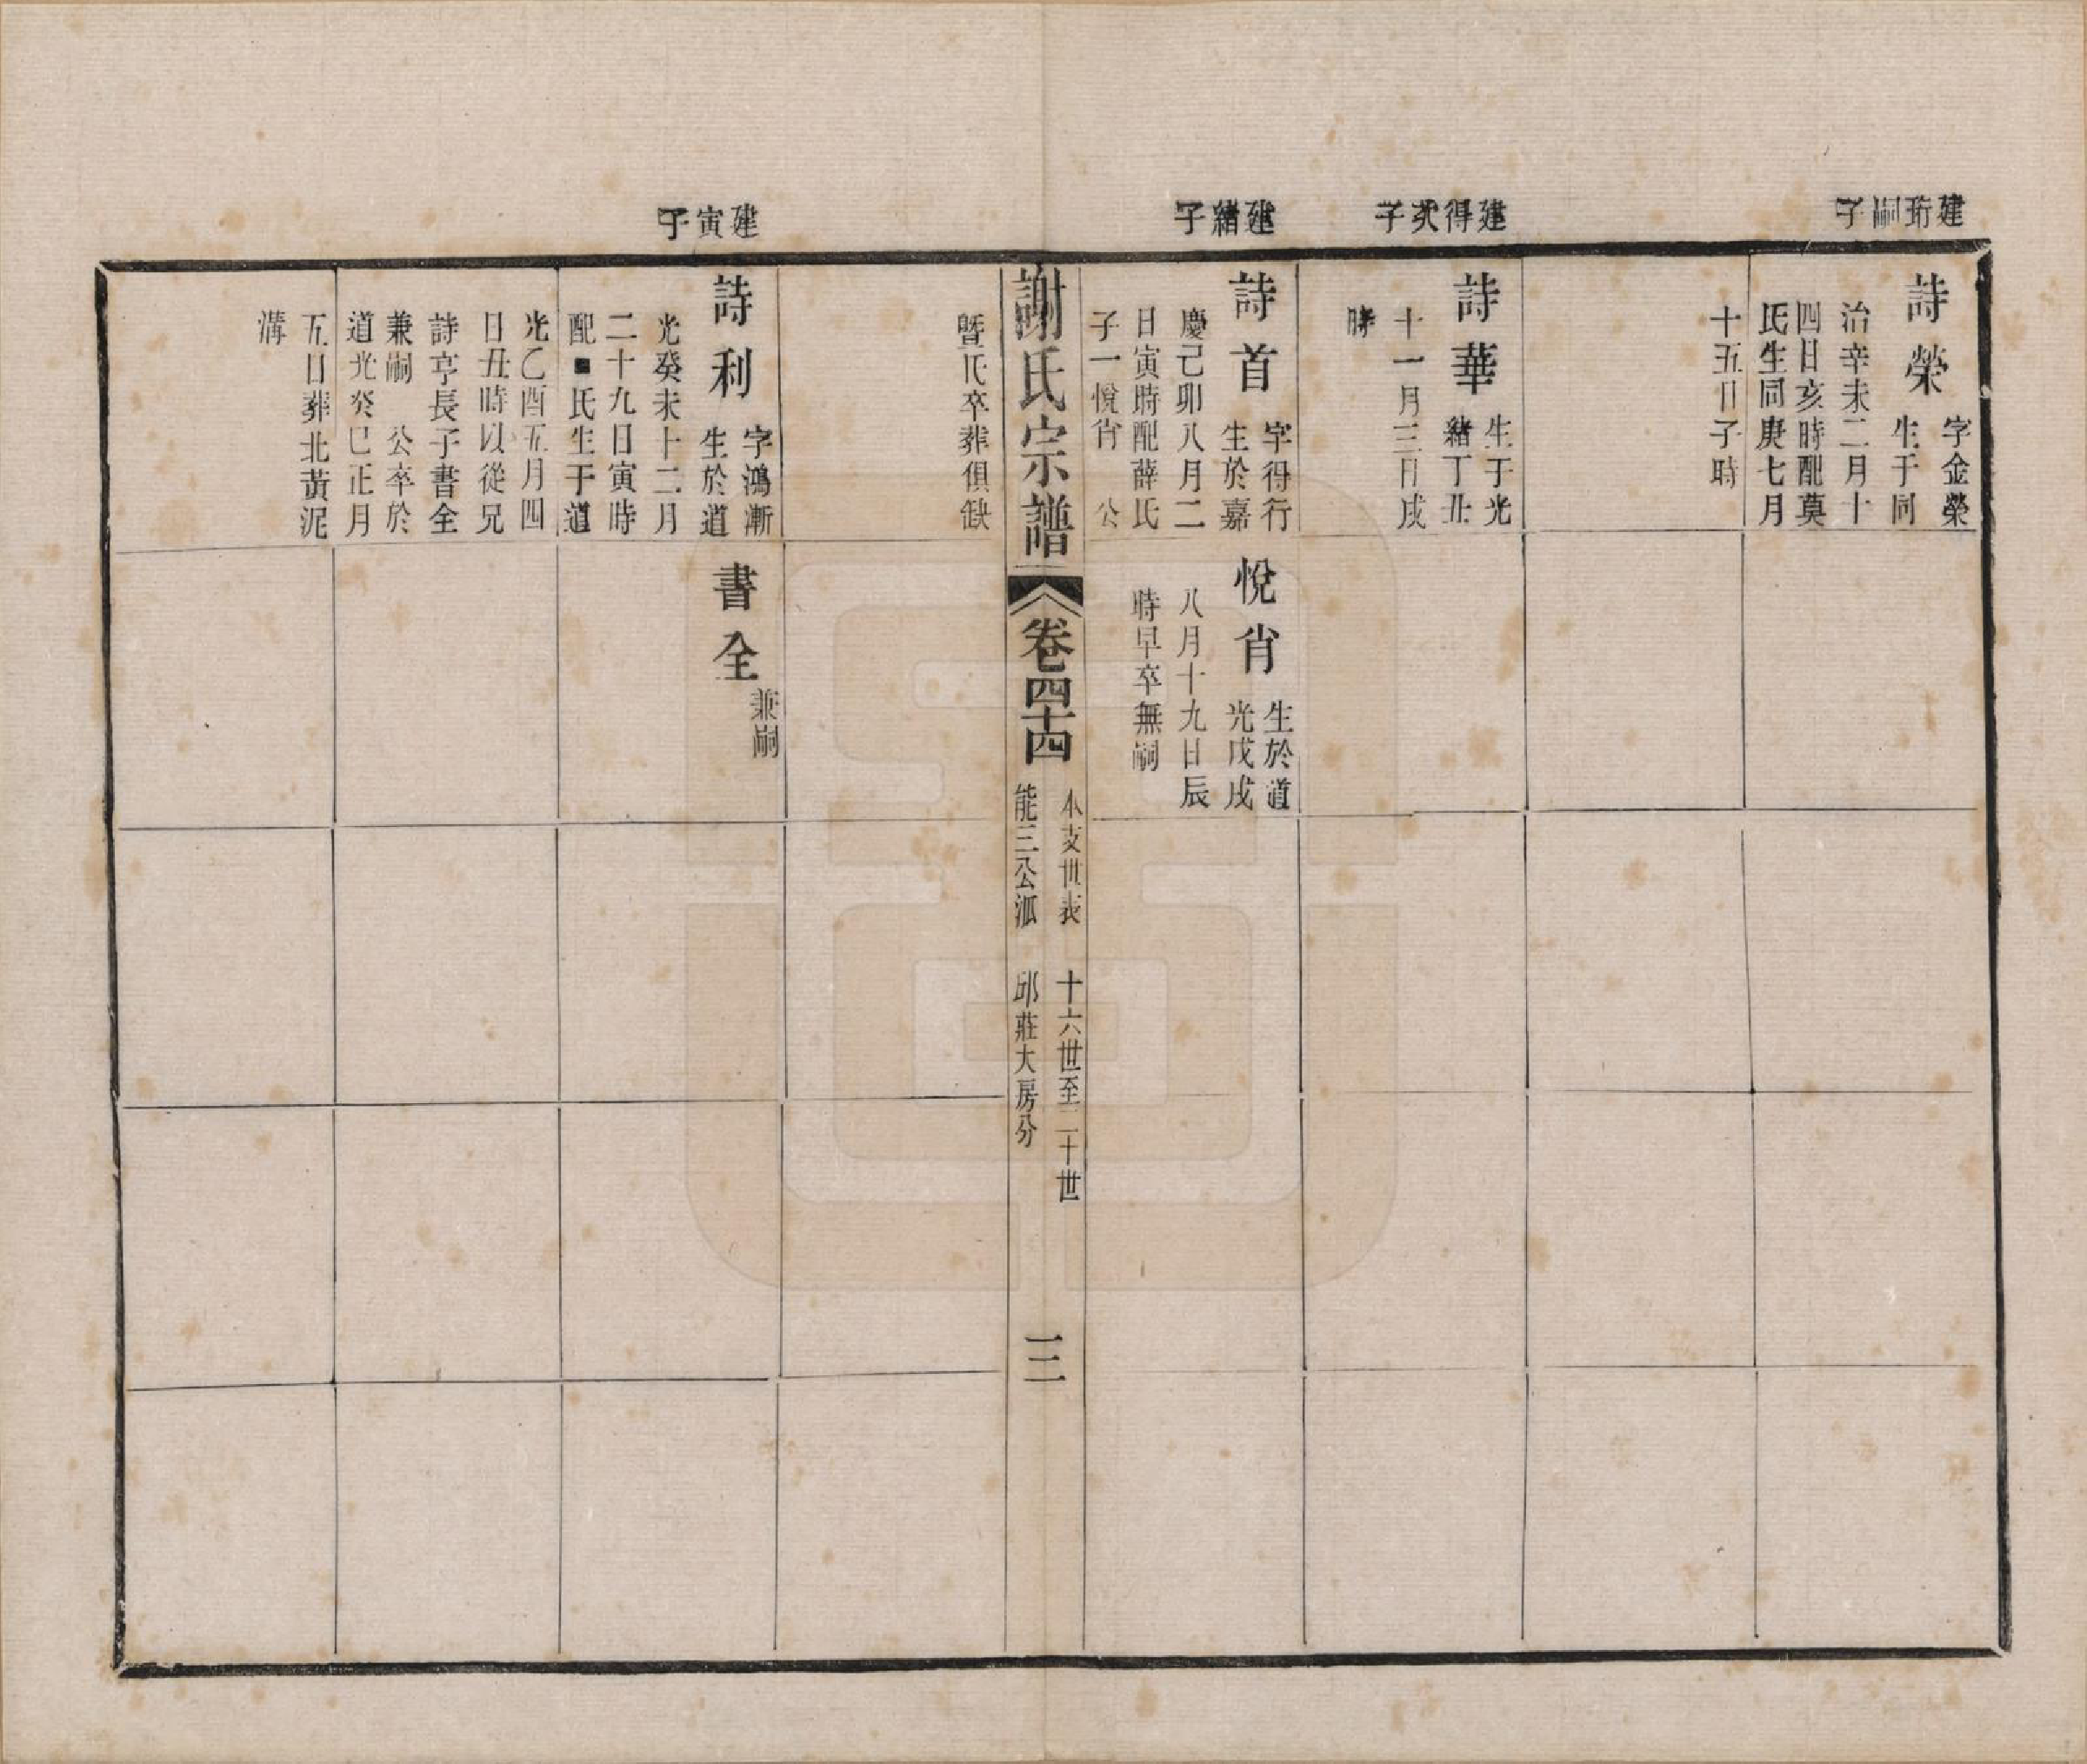 建珩嗣子
詩榮
字金榮
生于同
治辛未二月十
四日亥時配莫
氏生同庚七月
十五日子時
建得次子
詩華
生于光
緒丁丑
十一月三日戌
時
建緒子
詩首
字得行
生於嘉
慶己卯八月二
日寅時配薛氏
子一悅肖 公
暨氏卒葬俱缺
悅肖
生於道
光戊戌
八月十九日辰
時早卒無嗣
謝氏宗譜
卷四十四
本支世表 十六世至二十世
能三公派 邱莊大房分
三
建寅子
詩利
字鴻漸
生於道
光癸未十二月
二十九日寅時
配■氏生于道
光乙酉五月四
日丑時以從兄
詩亨長子書全
兼嗣 公卒於
道光癸巳正月
五日葬北黃泥
溝
書全
兼嗣